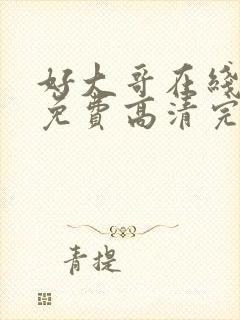 好大哥在綫
免費高清完
青提